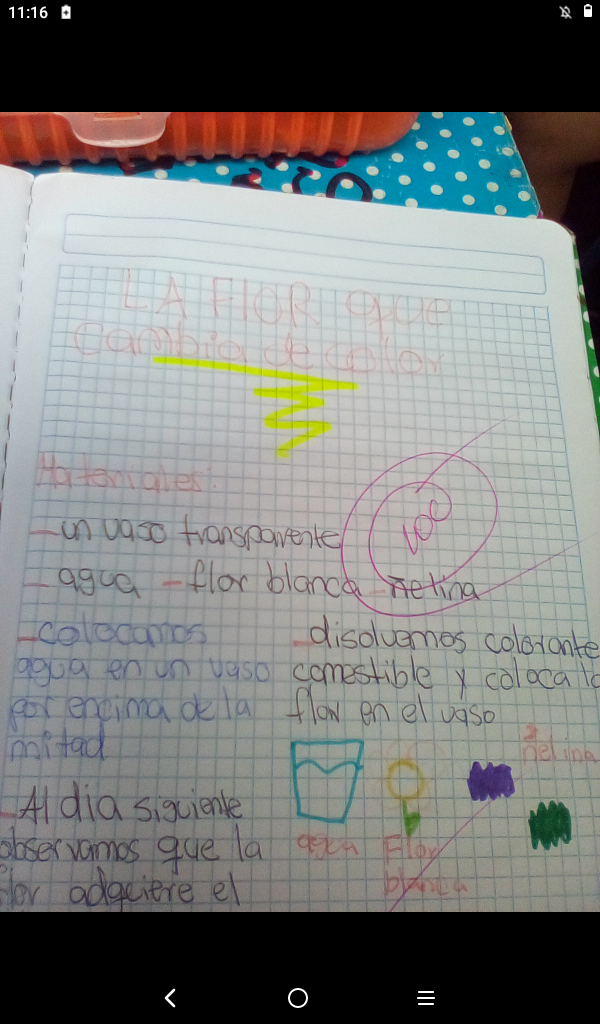 11:16
LA FlOR que
cambia de color
Materiales:
-un vaso transparente
- agua - flor blanca - ñelina
-colocamos
agua en un vaso
por encima de la
mitad
-disolvemos colorante
comestible y coloca la
flor en el vaso
ñelina
agua
Flor
blanca
-Al dia siguiente
observamos que la
flor adquiere el